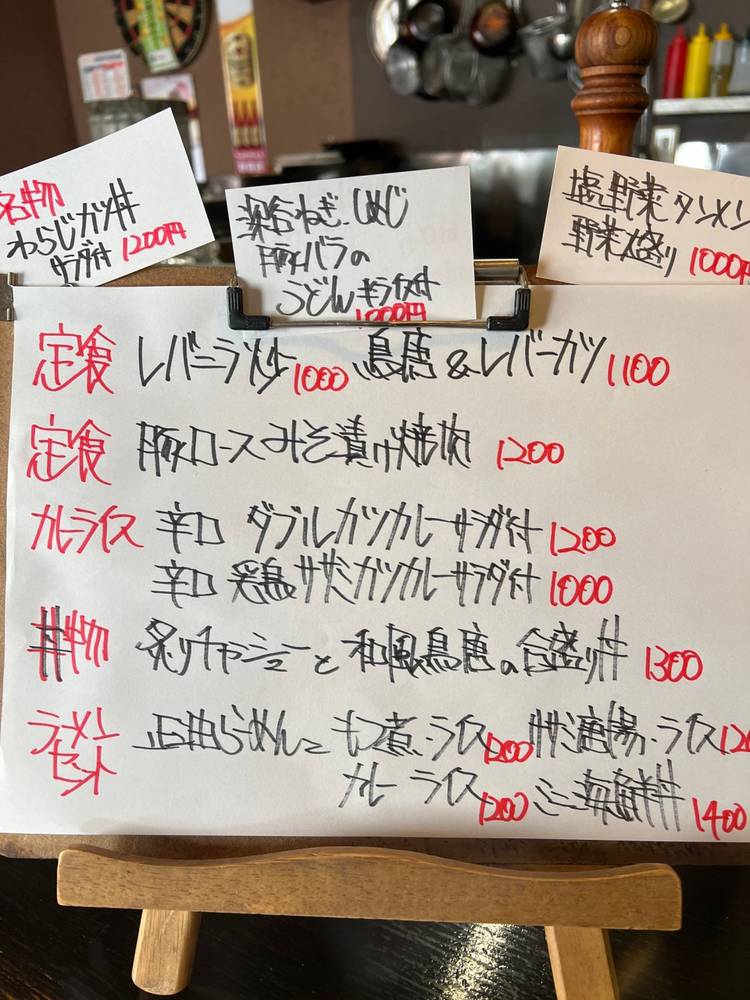 名物
わらじカツ丼
サラダ付 1200円
深谷ねぎ、しめじ
豚バラの
うどん 半ライス付
1000円
塩野菜タンメン
野菜大盛り 1000円
定食 レバニラ炒 1000 鳥唐&レバーカツ 1100
定食 豚ロースみそ漬け焼肉 1200
カレーライス 辛口 ダブルカツカレーサラダ付 1200
辛口 鶏ササミカツカレーサラダ付 1000
丼物 炙りチャーシューと和風鳥唐の合盛り丼 1300
ラーメンセット 正油らーめんと もつ煮・ライス 1200 ・ライス
カレーライス 1200 ミニ海鮮丼 1400